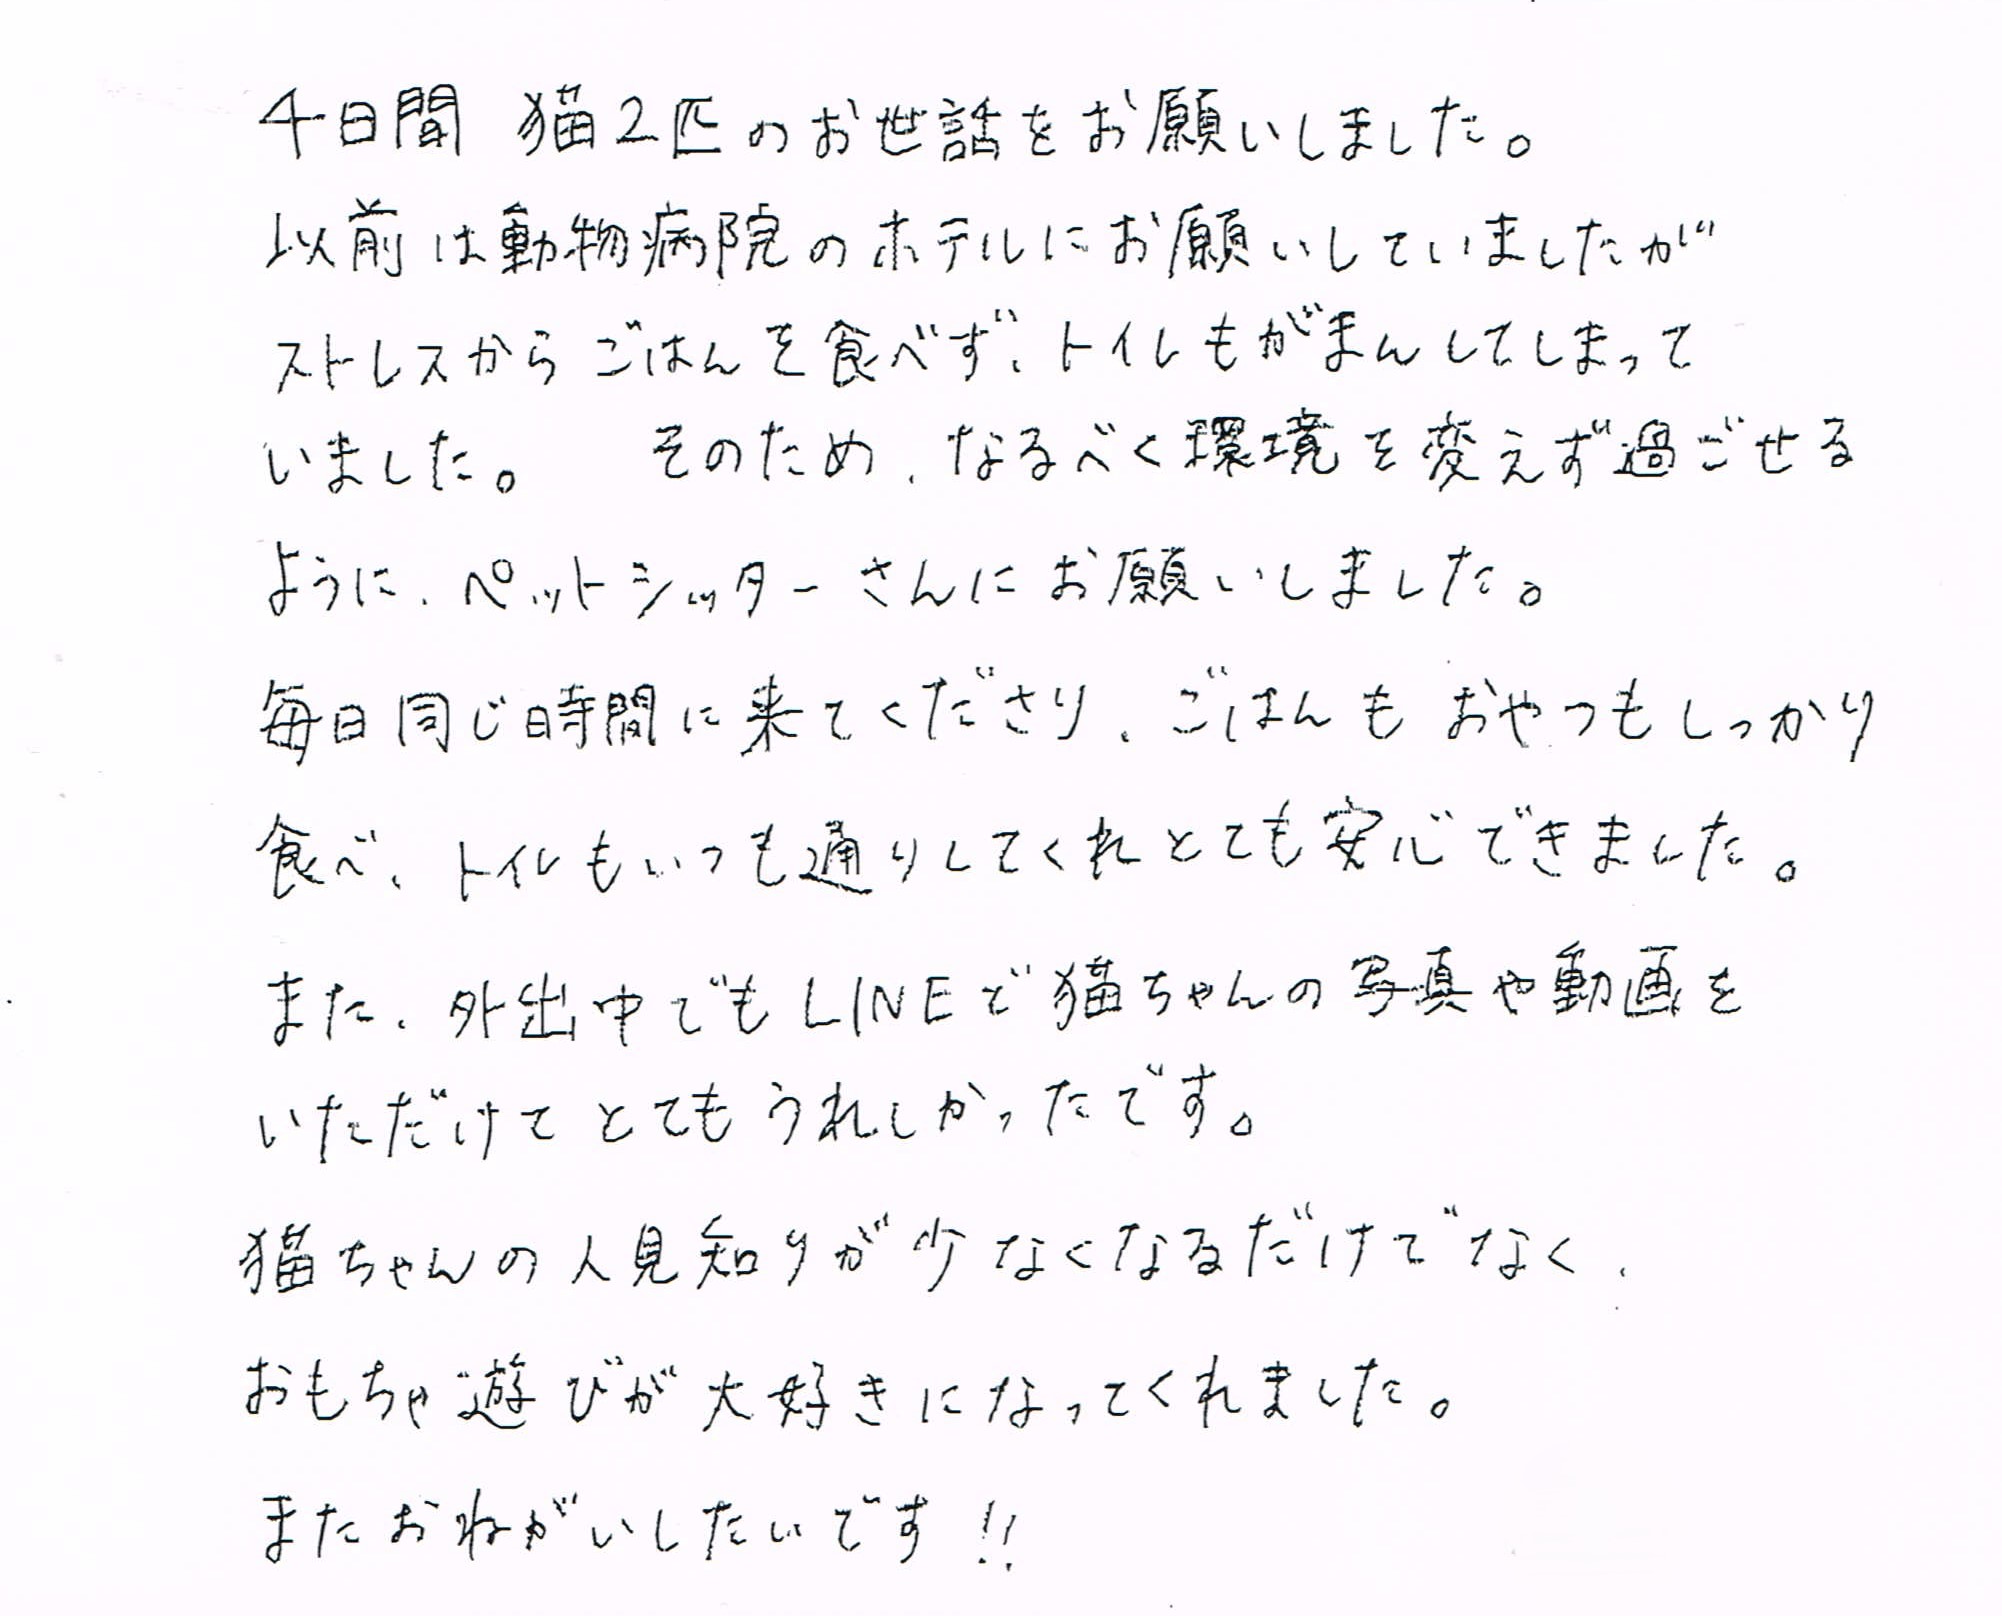 4日間 猫2匹のお世話をお願いしました。
以前は動物病院のホテルにお願いしていましたが
ストレスからごはんを食べず、トイレもがまんしてしまって
いました。 そのため、なるべく環境を変えず過ごせる
ように、ペットシッターさんにお願いしました。
毎日同じ時間に来てくださり、ごはんもおやつもしっかり
食べ、トイレもいつも通りしてくれとても安心できました。
また、外出中でもLINEで猫ちゃんの写真や動画を
いただけてとてもうれしかったです。
猫ちゃんの人見知りが少なくなるだけでなく、
おもちゃ遊びが大好きになってくれました。
またおねがいしたいです!!